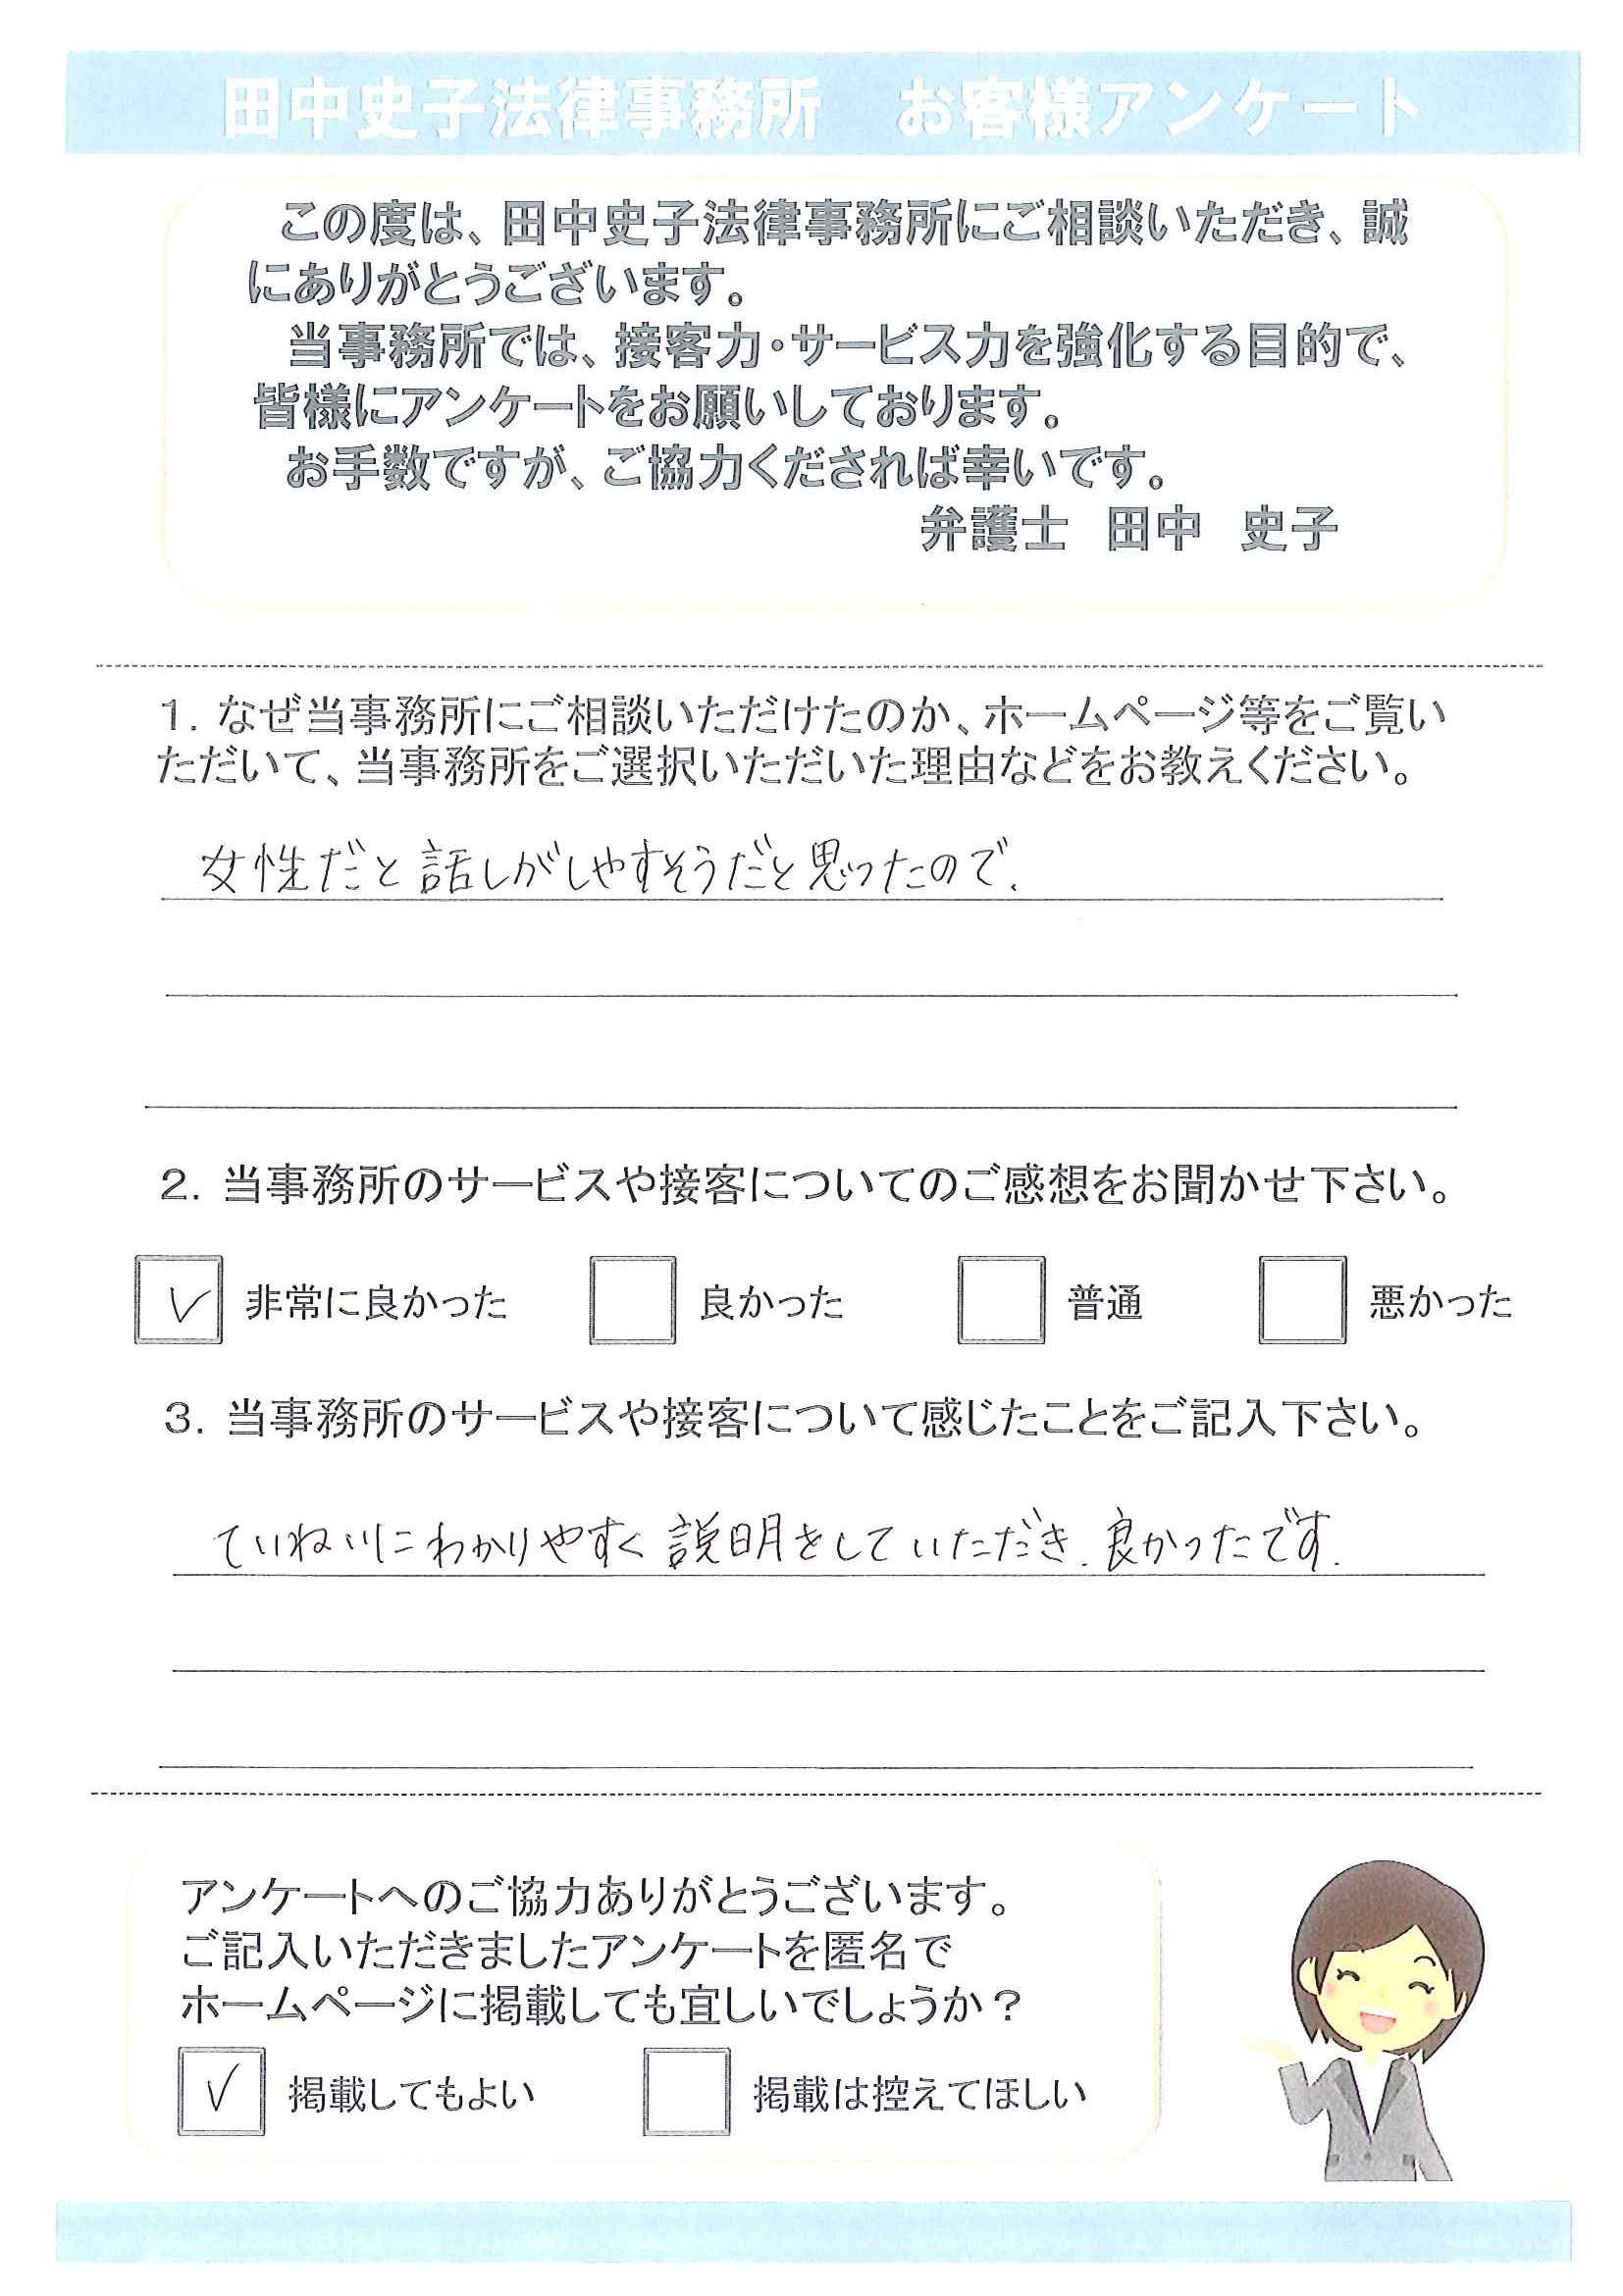 田中史子法律事務所　お客様アンケート
この度は、田中史子法律事務所にご相談いただき、誠
にありがとうございます。
当事務所では、接客力・サービス力を強化する目的で、
皆様にアンケートをお願いしております。
お手数ですが、ご協力くだされば幸いです。
弁護士　田中　史子
1. なぜ当事務所にご相談いただけたのか、ホームページ等をご覧い
ただいて、当事務所をご選択いただいた理由などをお教えください。
女性だと話しがしやすそうだと思ったので.
2. 当事務所のサービスや接客についてのご感想をお聞かせ下さい。
✓ 非常に良かった　良かった　普通　悪かった
3. 当事務所のサービスや接客について感じたことをご記入下さい。
ていねいにわかりやすく説明をしていただき.良かったです.
アンケートへのご協力ありがとうございます。
ご記入いただきましたアンケートを匿名で
ホームページに掲載しても宜しいでしょうか？
✓ 掲載してもよい　掲載は控えてほしい